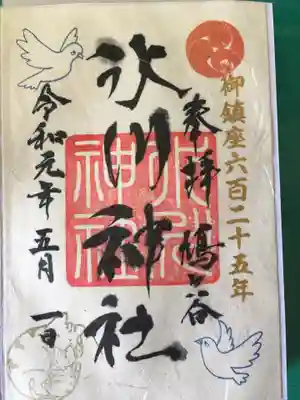 御鎮座六百二十五年
奉拝 鳩ヶ谷
氷川神社
令和元年五月一日